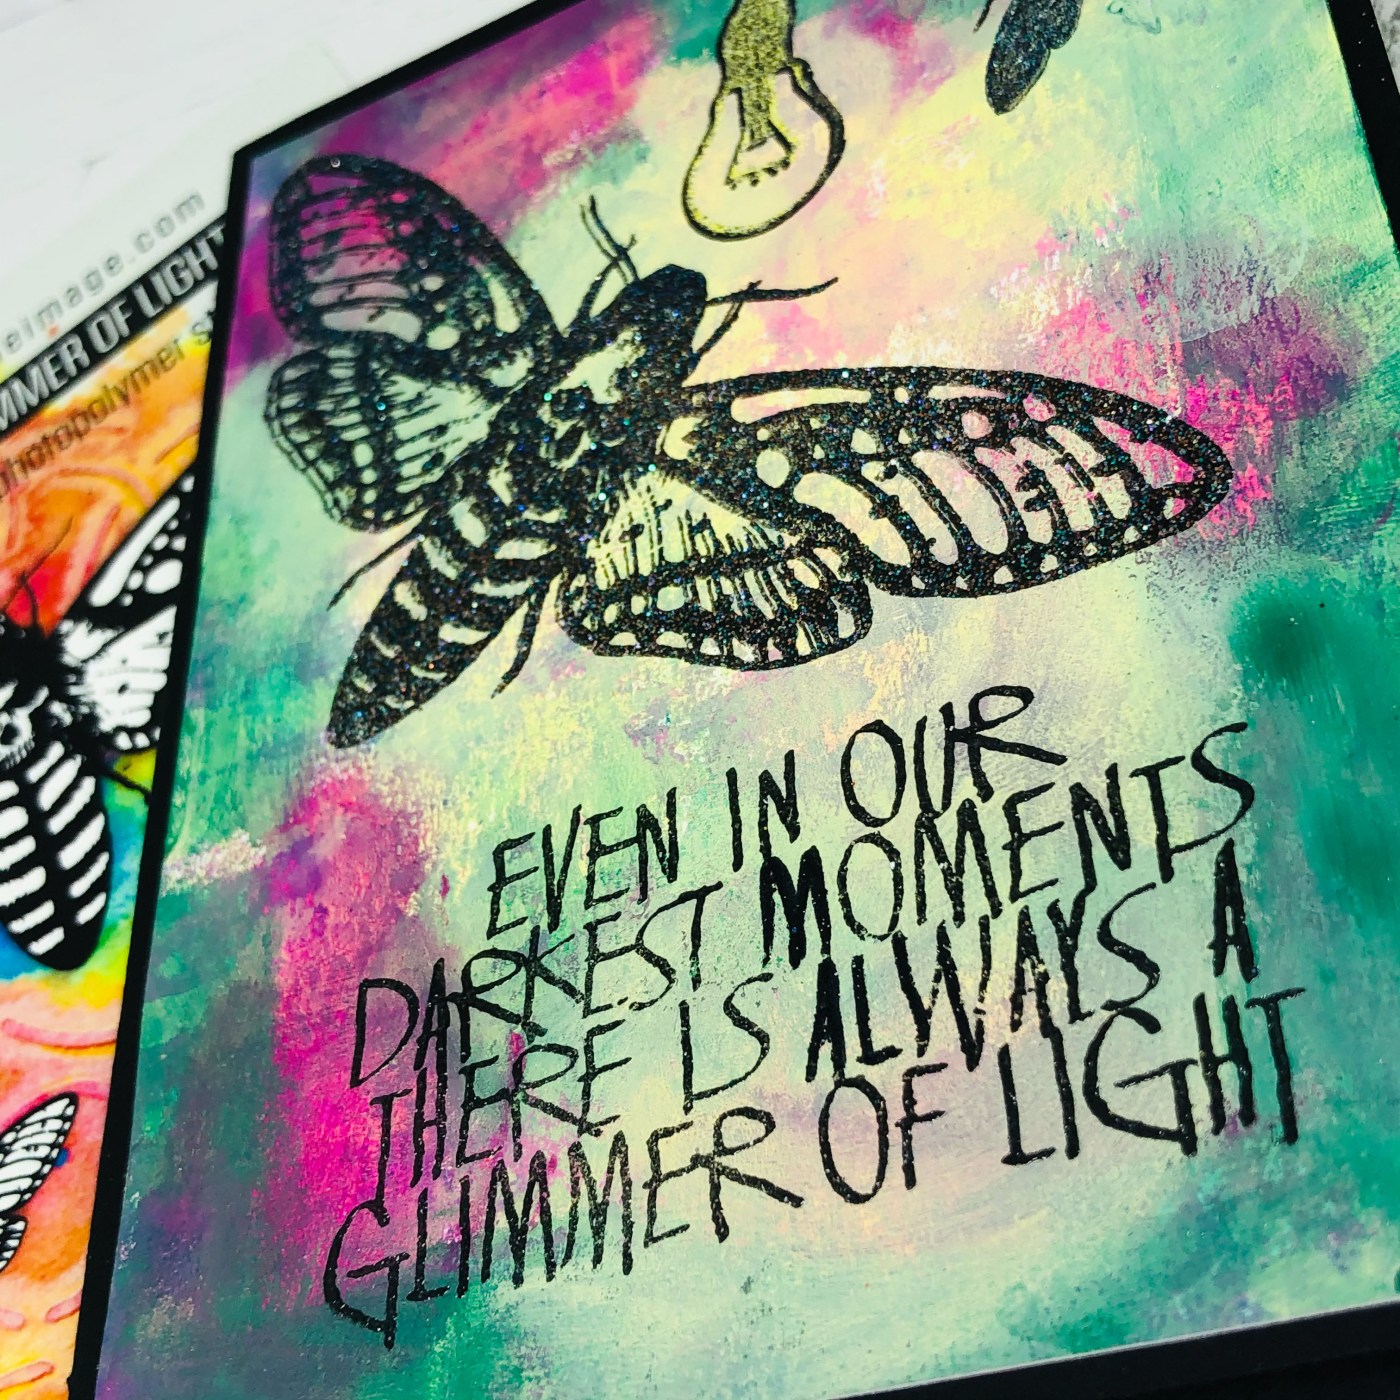 eimage.com
MMER OF LIGHT
photopolymer s
EVEN IN OUR
DARKEST MOMENTS
THERE IS ALWAYS A
GLIMMER OF LIGHT